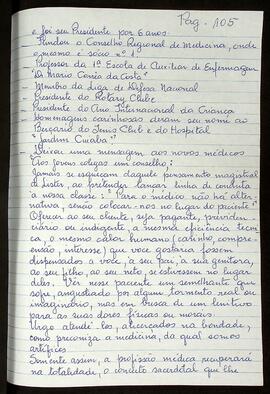 Pag. 105
e foi seu Presidente por 6 anos.
- Fundou o Conselho Regional de Medicina, onde
o mesmo é sócio nº 1
- Professor da 1ª Escola de Auxiliar de Enfermagem
"Dr Mario Corrêa da Costa"
- Membro da Liga de Defesa Nacional
- Presidente do Rotary Clube
- Presidente do Ano Internacional da Criança
- Homenagens carinhosas deram seu nome ao
Berçario do Tenis Club e do Hospital
"Jardim Cuiabá"
Deixou uma mensagem aos novos médicos
"Aos jovens colegas um conselho:
Jamais se esqueçam daquele pensamento magistral
de Lister, ao pretender lançar linha de conduta
à nossa classe: "Para o médico não há alter
nativa, senão colocar-nos no lugar do paciente".
Oferecer ao seu cliente, seja pagante, previden
ciário ou indigente, a mesma eficiência técni
ca, o mesmo calor humano (carinho, compre-
ensão, interesse) que você gostaria fossem
dispensados a você, a seu pai, a sua genitora,
ao seu filho, ao seu neto, se estivessem no lugar
deles. Ver nesse paciente um semelhante que
sofre, angustiado por algum tormento real ou
imaginário, mas em busca de um lenitivo
para as suas dores físicas ou morais.
Urge atendê-los, alicerçados na bondade,
como preconiza a medicina, da qual somos
artífices.
Somente assim, a profissão médica recuperará
na totalidade, o conceito sacerdotal que lhe